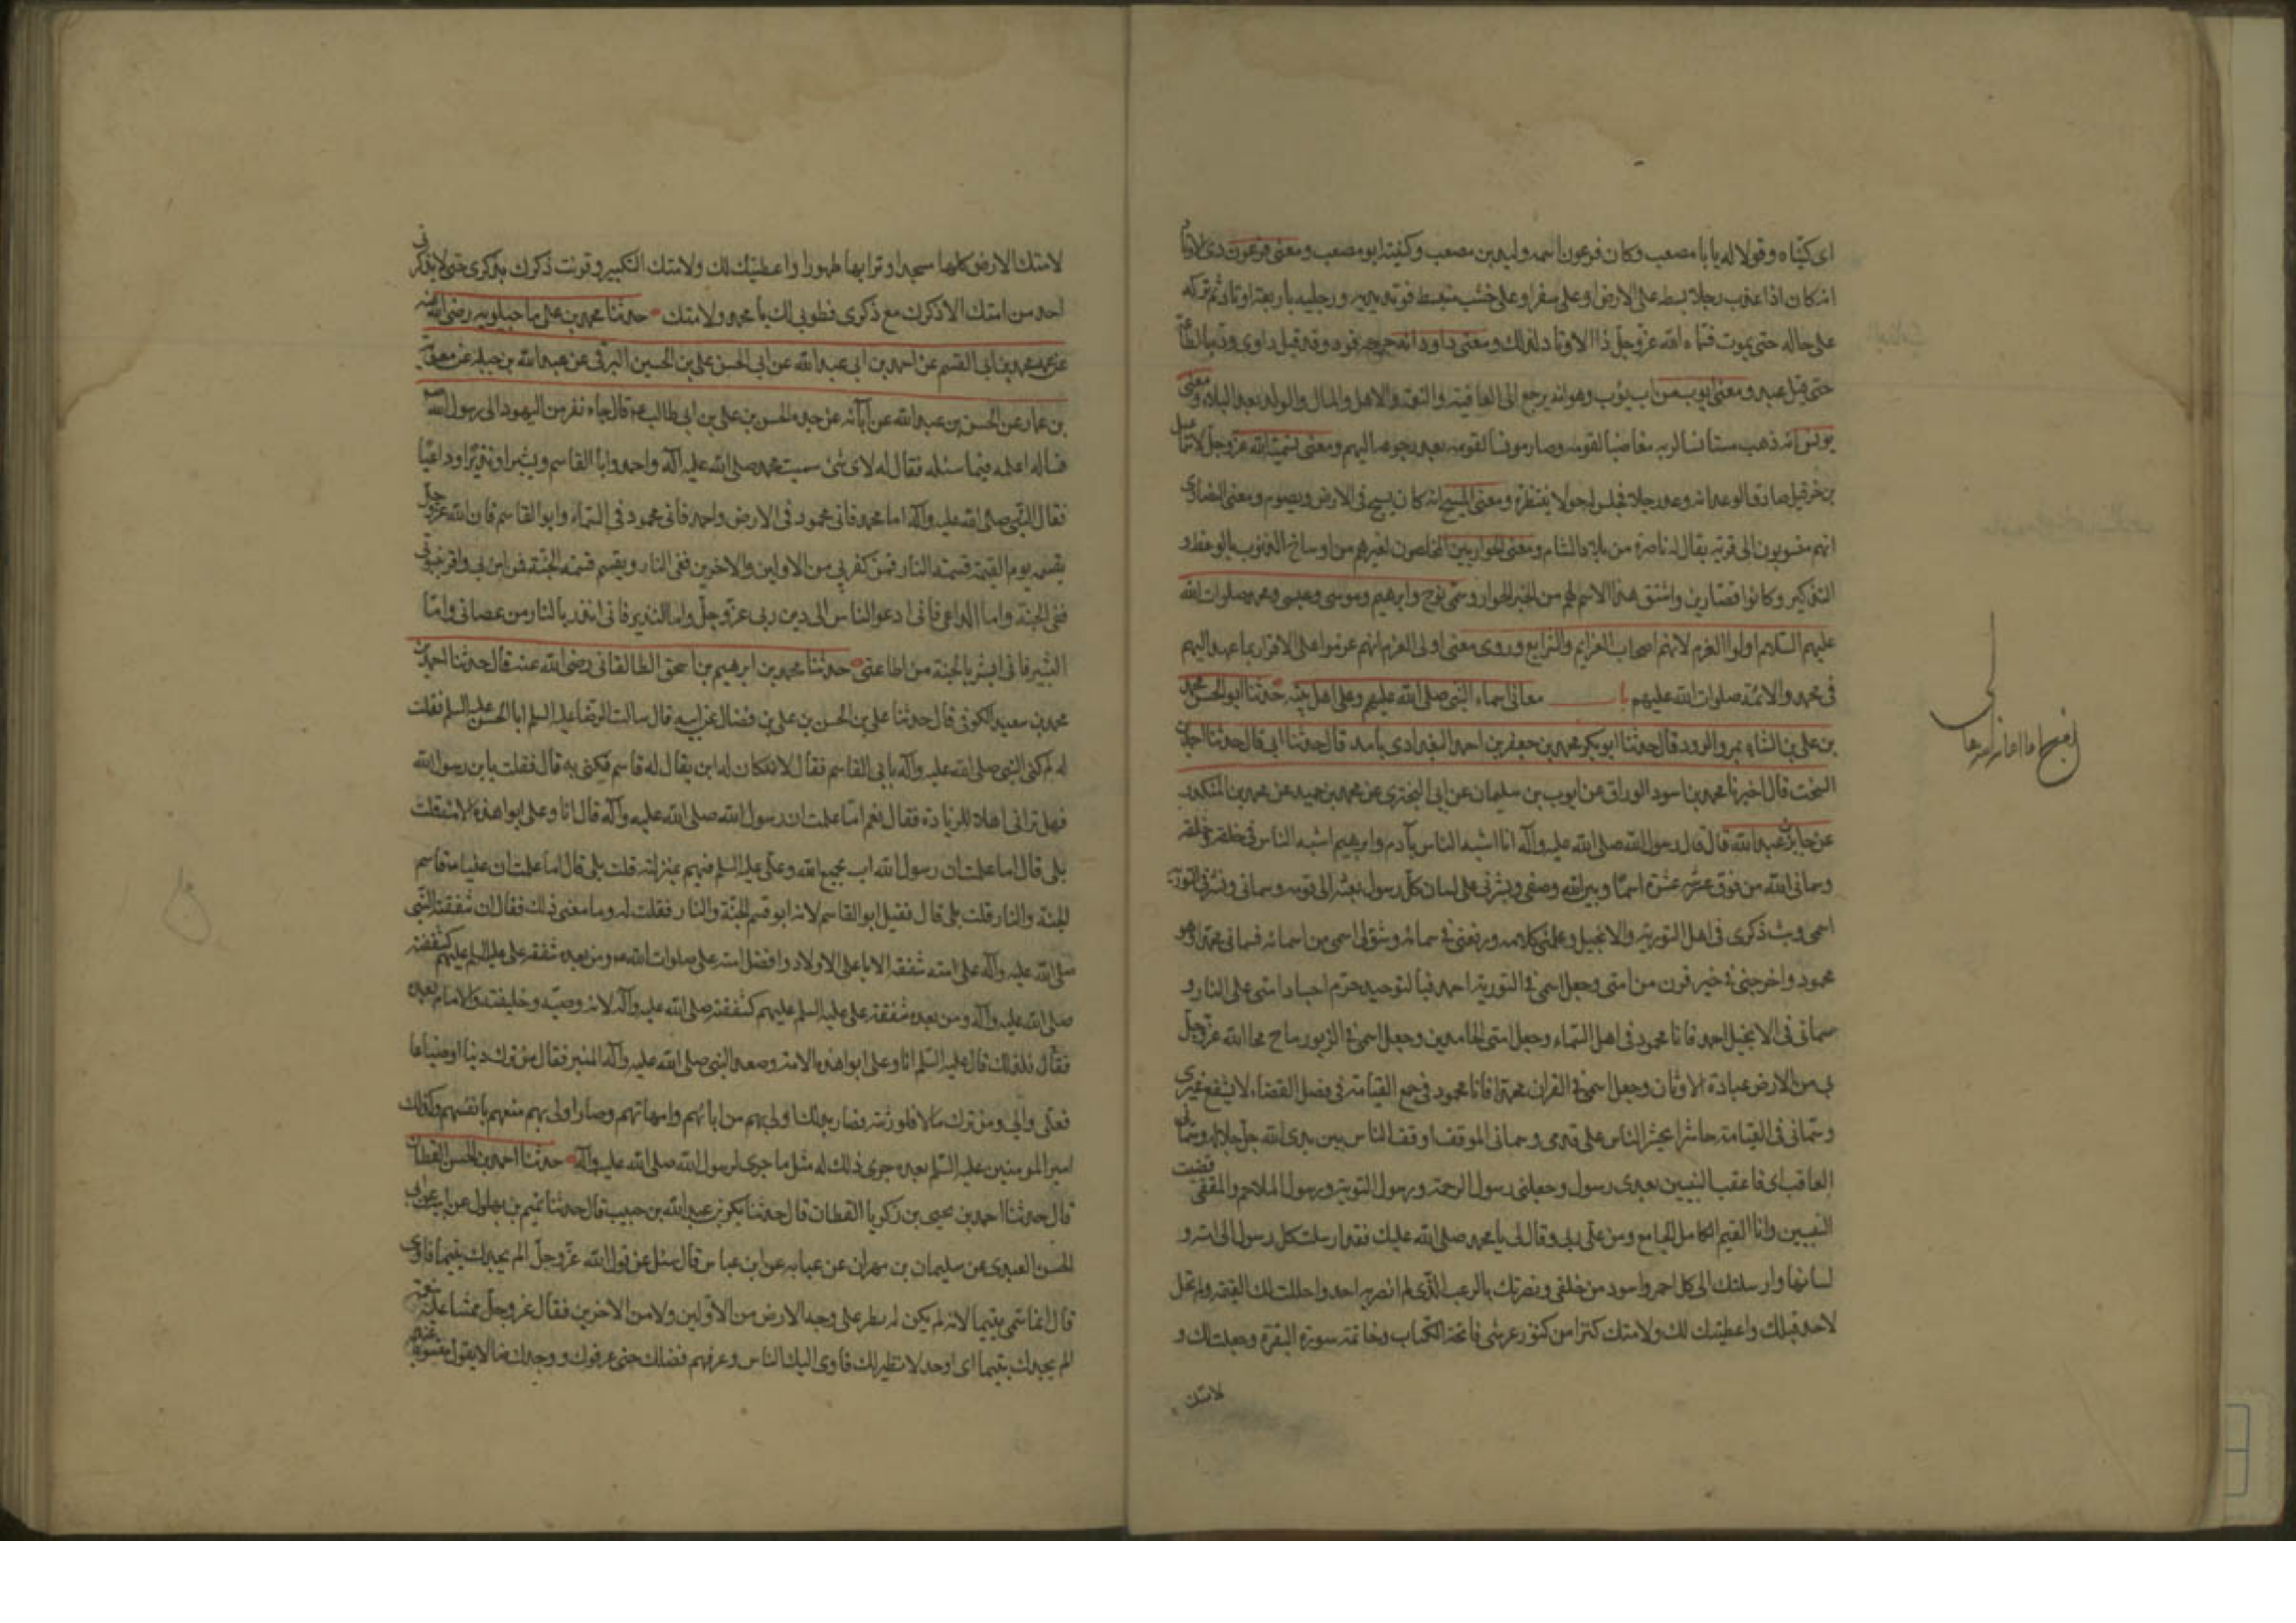 اى كنّياه وقولا له يا با مصعب وكان فرعون اسمه وليد بن مصعب وكنيته ابو مصعب ومعنى فرعون ذى الاوتاد
انه كان اذا عذب رجلا بسطه على الارض او على خشب منبسط فوتد يديه ورجليه باربعة اوتاد ثم تركه
على حاله حتى يموت فسماه الله عزّ وجلّ ذا الاوتاد لذلك ومعنى داود انه جرحه فود وقد قيل داوى وده بالطاعة
حتى قيل عبد ومعنى ايوب من اب يؤب وهو انه يرجع الى العافية والنعمة والاهل والمال والولد بعد البلاء ومعنى
يونس انه ذهب مستانسا لربه مغاضبا لقومه وصار مونسا لقومه بعد رجوعه اليهم ومعنى تسمية الله عزّ وجلّ لاسماعيل
بن حزقيل صادق الوعد انه وعد رجلا فجلس له حولا ينتظره ومعنى المسيح انه كان يسيح فى الارض ويصوم ومعنى النصارى
انهم منسوبون الى قرية يقال له ناصرة من بلاد الشام ومعنى الحواريين المخلصون لغيرهم من اوساخ الذنوب بالوعظ و
التذكير وكانوا قصّارين واشتق هذا الاسم لهم من الخبز الحوار وسمى نوح وابرهيم وموسى وعيسى ومحمد صلوات الله
عليهم السّلام اولوا العزم لانهم اصحاب العزايم والشرايع وروى معنى اولى العزم انهم عزموا على الاقرار بما عهد اليهم
فى محمد والائمة صلوات الله عليهم باب معانى اسماء النبى صلى الله عليهم وعلى اهل بيته حدثنا ابو الحسن محمد
بن على بن الشاه بمرو الرود قال حدثنا ابو بكر محمد بن جعفر بن احمد البغدادى بآمد قال حدثنا ابى قال حدثنا احمد بن
السخت قال اخبرنا محمد بن اسود الوراق عن ايوب بن سليمان عن ابى البخترى عن محمد بن حميد عن محمد بن المنكدر
عن جابر بن عبد الله قال قال رسول الله صلى الله عليه وآله انا اشبه الناس بآدم وابرهيم اشبه الناس فى خلقه وخلقه
وسمانى الله من فوق عرشه عشرة اسماء وبين الله وصفى وبشرنى على لسان كل رسول بعثه الى قومه وسمانى ونشر فى التورية
اسمى وبث ذكرى فى اهل التورية والانجيل وعلمنى كلامه ورفعنى فى سمائه وشق لى اسمى من اسمائه فسمانى محمدا وهو
محمود واخرجنى فى خير قرن من امتى وجعل اسمى فى التورية احيد فبالتوحيد حرّم اجساد امتى على النار و
سمانى فى الانجيل احمد فانا محمود فى اهل السّماء وجعل امتى الحامدين وجعل اسمى فى الزبور ماح محا الله عزّ وجلّ
بى من الارض عبادة الاوثان وجعل اسمى فى القران محمدا فانا محمود فى جمع القيامة فى فصل القضاء لا يشفع غيرى
وسمّانى فى القيامة حاشرا يحشر الناس على قدمى وسمانى الموقف اوقف الناس بين يدى الله جلّ جلاله وسمّانى
العاقب اى فاعقب النبيين ليس بعدى رسول وجعلنى رسول الرحمة ورسول التوبة ورسول الملاحم والمقفى قفيت
النبيين وانا القيم الكامل الجامع ومن على ربى وقال لى يا محمد صلى الله عليك فقد ارسلت كل رسول الى امته و
لسانها وارسلتك الى كل احمر واسود من خلقى ونصرتك بالرعب الذى لم انصر به احدا واحللت لك الغنيمة ولم تحل
لاحد قبلك واعطيتك لك ولامتك كنزا من كنوز عرشى فاتحة الكتاب وخاتمة سورة البقرة وجعلت لك و
لامتك
لامتك الارض كلها مسجدا وترابها طهورا واعطيتك لك ولامتك التكبير وقرنت ذكرك بذكرى حتى لا يذكرنى
احد من امتك الا ذكرك مع ذكرى فطوبى لك يا محمد ولامتك حدثنا محمد بن على ماجيلويه رضى الله عنه
عن عمه محمد بن ابى القسم عن احمد بن ابى عبد الله عن ابى الحسن على بن الحسين البرقى عن عبد الله بن جبلة عن معوية
بن عمار عن الحسن بن عبد الله عن آبائه عن جده الحسن بن على بن ابى طالب قال جاء نفر من اليهود الى رسول الله
فساله اعلمهم فيما سئله فقال له لاى شئ سميت محمد صلى الله عليه وآله واحمد وابا القاسم وبشيرا ونذيرا وداعيا
فقال النّبى صلى الله عليه وآله اما محمد فانى محمود فى الارض واحمد فانى محمود فى السّماء وابو القاسم فان الله عزّ وجلّ
يقسم يوم القيمة قسمة النار فمن كفر بى من الاولين والاخرين ففى النار ويقسم قسمة الجنّة فمن امن بى واقر بنبوتى
ففى الجنة واما الداعى فانى ادعو الناس الى دين ربى عزّ وجلّ واما النذير فانى انذر بالنار من عصانى وامّا
البشير فانى ابشر بالجنة من اطاعنى حدثنا محمد بن ابرهيم بن اسحق الطالقانى رضى الله عنه قال حدثنا احمد بن
محمد بن سعيد الكوفى قال حدثنا على بن الحسن بن على بن فضال عن ابيه قال سالت الرضا عليه السلم ابا الحسن عليه السلم فقلت
له لم كنى النبى صلى الله عليه وآله بابى القاسم فقال لانه كان له ابن يقال له قاسم فكنى به قال فقلت يا بن رسول الله
فهل ترانى اهلا للزيادة فقال نعم امّا علمت ان رسول الله صلى الله عليه وآله قال انا وعلى ابوا هذه الامة قلت
بلى قال اما علمت ان رسول الله اب لجميع امته وعلى عليه السلم فيهم بمنزلته قلت بلى قال اما علمت ان عليا قاسم
الجنة والنار قلت بلى قال فقيل ابو القاسم لانه ابو قسيم الجنّة والنار فقلت له وما معنى ذلك فقال ان شفقة النّبى
صلى الله عليه وآله على امته شفقة الابا على الاولاد وافضل امته على صلوات الله عليه ومن بعده شفقة على عليه السلم عليهم كشفقته
صلى الله عليه وآله ومن بعده شفقة على عليه السلم عليهم كشفقته صلى الله عليه وآله لانه وصيّه وخليفته والامام بعده
فقال فلذلك قال عليه السّلم انا وعلى ابوا هذه الامة وصعد النبى صلى الله عليه وآله المنبر فقال من ترك دينا او ضياعا
فعلى والى ومن ترك مالا فلورثته فصار بذلك اولى بهم من ابائهم وامهاتهم وصار اولى بهم منهم بانفسهم وكذلك
امير المومنين عليه السّلم بعده جرى ذلك له مثل ما جرى لرسول الله صلى الله عليه وآله حدثنا احمد بن الحسن القطان
قال حدثنا احمد بن يحيى بن زكريا القطان قال حدثنا بكر بن عبد الله بن حبيب قال حدثنا تميم بن بهلول عن ابيه عن ابى
الحسن العبدى عن سليمان بن مهران عن عبايه عن ابن عباس قال سئل عن قول الله عزّ وجلّ الم يجدك يتيما فاوى
قال انما سمى يتيما لانه لم يكن له نظير على وجه الارض من الاوّلين ولا من الاخرين فقال عزّ وجلّ ممتنا عليه نعمه
الم يجدك يتيما اى اوحد لا نظير لك فاوى اليك الناس وعرفهم فضلك حتى عرفوك ووجدك ضالا يقول منسوبا